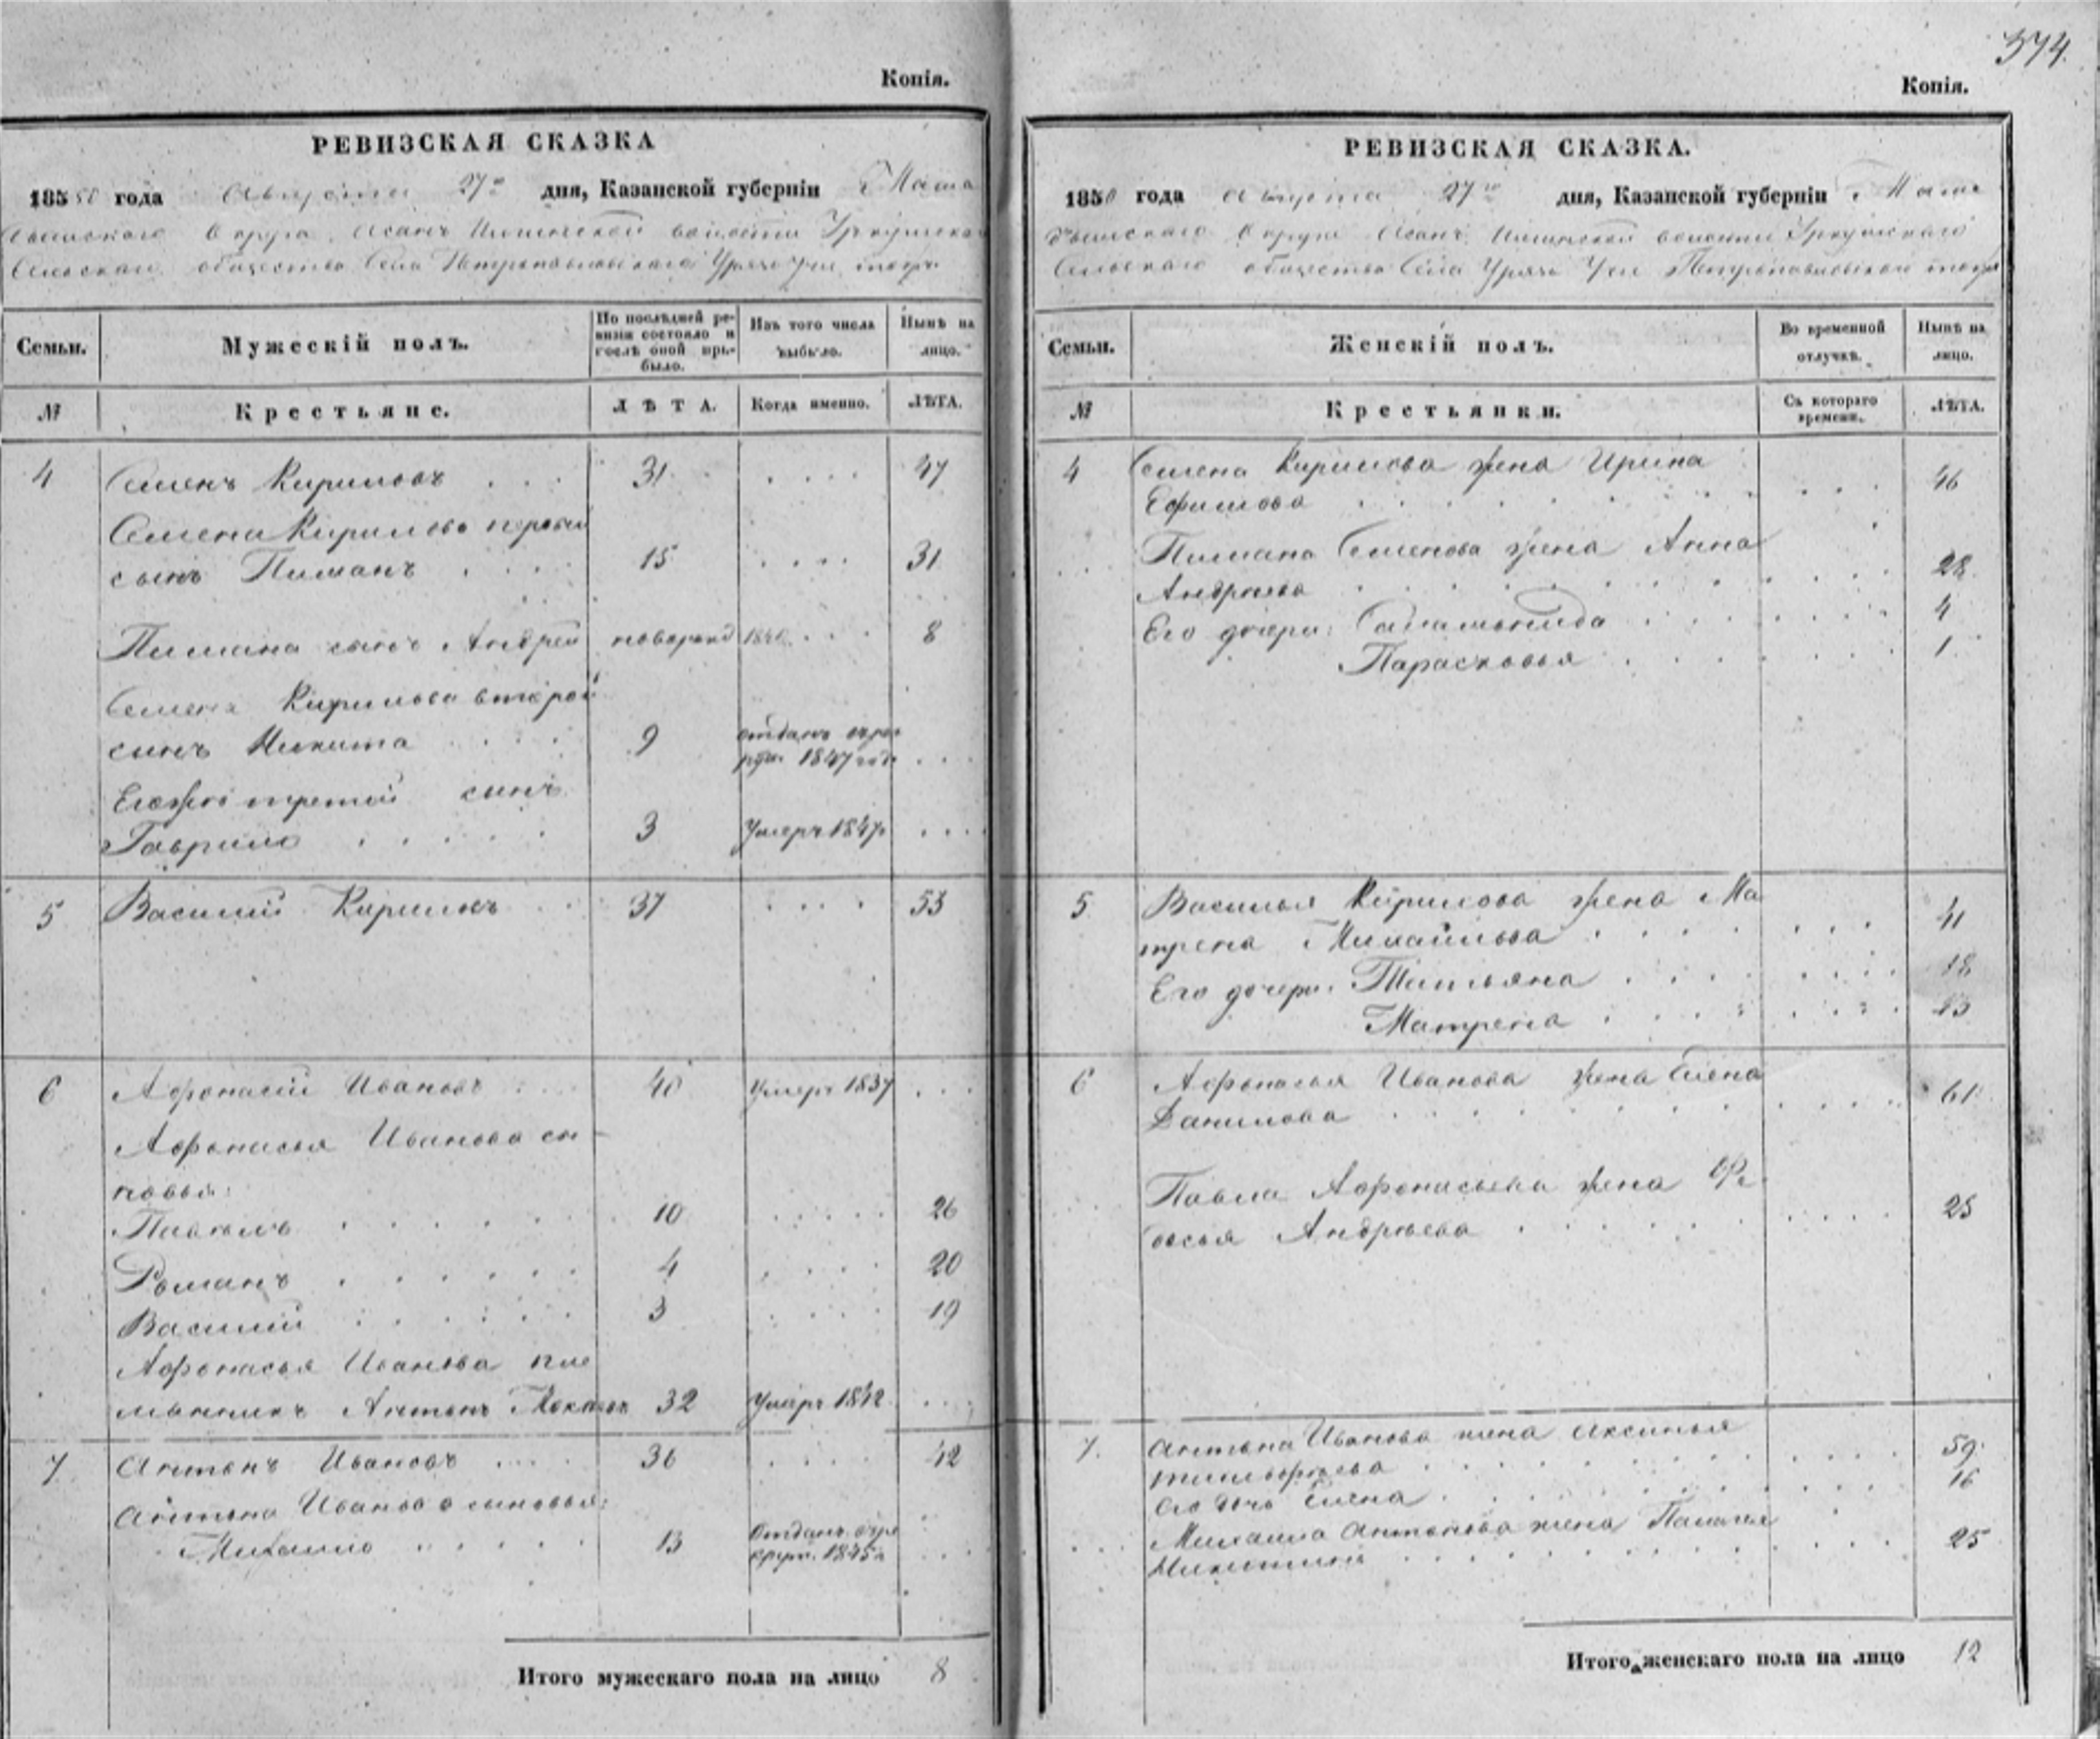 374.
Копія.
РЕВИЗСКАЯ СКАЗКА
1850 года Августа 27го дня, Казанской губерніи Мама
дышскаго Округа, Асанъ Илгинской волости Уркушскаго
Сельскаго общества Села Петропавловскаго Урясь Учи тожъ
Семьи.
Мужескій полъ.
По послѣдней ре-
визіи состояло и
послѣ оной при-
было.
Изъ того числа
выбыло.
Нынѣ на
лицо.
№
Крестьяне.
ЛѢТА.
Когда именно.
ЛѢТА.
4 Семенъ Кириловъ . . . 31 . . . . 47
Семена Кирилова первый
сынъ Пиманъ . . . . 15 . . . . 31
Пимана сынъ Андрей новорожд . . . 8
Семена Кирилова второй
сынъ Никита . . . 9 отданъ въ рек
рут. 1847 годе . . .
Его же третій сынъ
Гаврило . . . . . 3 Умеръ 1847 . . . .
5 Василій Кириловъ . . 37 . . . . 53
6 Афонасій Ивановъ . . . 40 Умеръ 1837 . . .
Афонасья Иванова сы-
новья:
Павелъ . . . . . . 10 . . . . . 26
Романъ . . . . . . 4 . . . . 20
Василій . . . . . . 3 . . . . 19
Афонасья Иванова пле
мянникъ Антонъ 32 Умеръ 1842 . . .
7 Антонъ Ивановъ . . . . 36 . . . . 42
Антона Иванова сыновья:
Михайло . . . . . 13 Отданъ въ ре
крут. 1845 г . . .
Итого мужескаго пола на лицо 8
Копія.
РЕВИЗСКАЯ СКАЗКА.
1850 года Августа 27го дня, Казанской губерніи Мама
дышскаго Округа Асанъ Илгинской волости Уркушскаго
Сельскаго общества Села Урясь Учи Петропавловской тожъ
Семьи.
Женскій полъ.
Во временной
отлучкѣ.
Нынѣ на
лицо.
№
Крестьянки.
Съ котораго
времени.
ЛѢТА.
4 Семена Кирилова жена Ирина
Ефимова . . . . . . . . . 46
Пимана Семенова жена Анна
Андреева . . . . . . . . . 28
Его дочери: . . . . . . . . 4
Парасковья . . . . . . . 1
5 Василья Кирилова жена Ма
трена Михайлова . . . . . . . . 41
Его дочери: Татьяна . . . . . . . . 18
Матрена . . . . . . . . 13
6 Афонасья Иванова жена Елена
Данилова . . . . . . . . . . 61
Павла Афонасьева жена Фе
досья Андреева . . . . . . . . . 25
7 Антона Иванова жена Аксинья
Тимофѣева . . . . . . . . . . 59
Его дочь Елена . . . . . . . . . 16
Михаила Антонова жена Палагея
Никитина . . . . . . . . . . 25
Итого женскаго пола на лицо 12